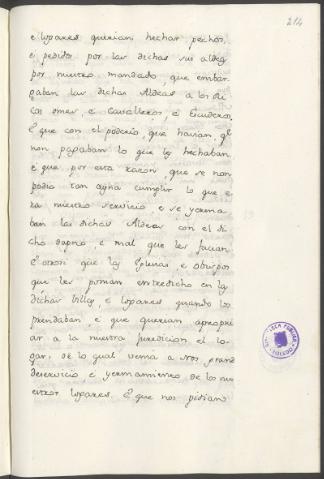 214
é lopares querian hechar pechos,
é pedidos por las dichas sus aldeas
por nuestro mandado, que embar
gaban las dichas Aldeas a los di
cos omes, é Cavalleros, é Escuderos,
é que con el poderio, que havian, qe
non pagaban lo que les hechaban
é que por esta razon, que se non
podia tan ayna cumplir lo que e
ra nuestro servicio e se yerma
ban las dichas Aldeas con el di
cho dapno, é mal que les facian.
é otrosi que las Iglesias, é obispos
que les ponian entredicho en las
dichas villas, é lopares quando los
prendaban, é que querian apropri
ar a la nuestra juredicion el lo
gar, de lo qual venia a nos grand
deservicio é yermamiento de los nu
estros lopares. é que nos pidian